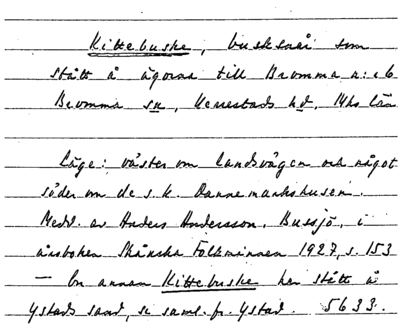 Kittebuske, busksnår som
stått å ägorna till Bromma n:i 6
Bromma sn, Herrestads hd, Mhs län
Läge: väster om landsvägen och något
söder om de s.k. Dannemarkshusen.
Medd. av Anders Andersson, Bussjö, i
årsboken Skånska Folkminnen 1927, s. 153
— En annan Kittebuske har stått å
Ystads sand, se saml. fr. Ystad. 5633.